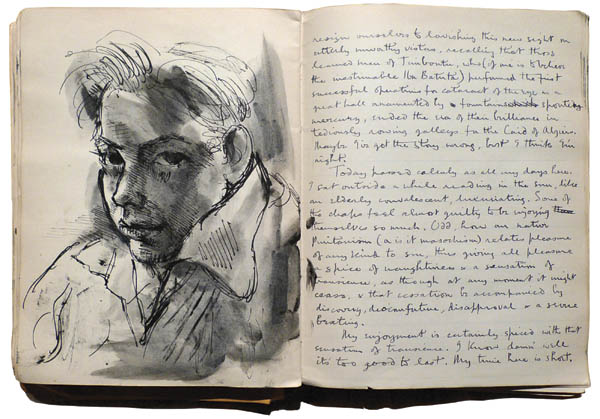 resign ourselves to lavishing this new sight on
utterly unworthy vistas, recalling that those
learned men of Timbuctu, who (if one is to believe
the inestimable Ibn Batuta) performed the first
successful operations for cataract of the eye in a
great hall ornamented by a fountain spouting
mercury, ended the era of their brilliance in
tediously rowing galleys for the Caid of Algiers.
Maybe I've got the story wrong, but I think I'm
right.
Today passed calmly as all my days here.
I sat outside a while reading in the sun, like
an elderly convalescent, luxuriating. Some of
the chaps feel almost guilty to be enjoying
themselves so much. Odd, how our native
Puritanism (or is it masochism) relates pleasure
of any kind to sin, thus giving all pleasure
a spice of naughtiness & a sensation of
transience, as though at any moment it might
cease, & that cessation be accompanied by
discovery, discomfiture, disapproval & a severe
beating.
My enjoyment is certainly spiced with that
sensation of transience. I know damn well
it's too good to last. My time here is short,